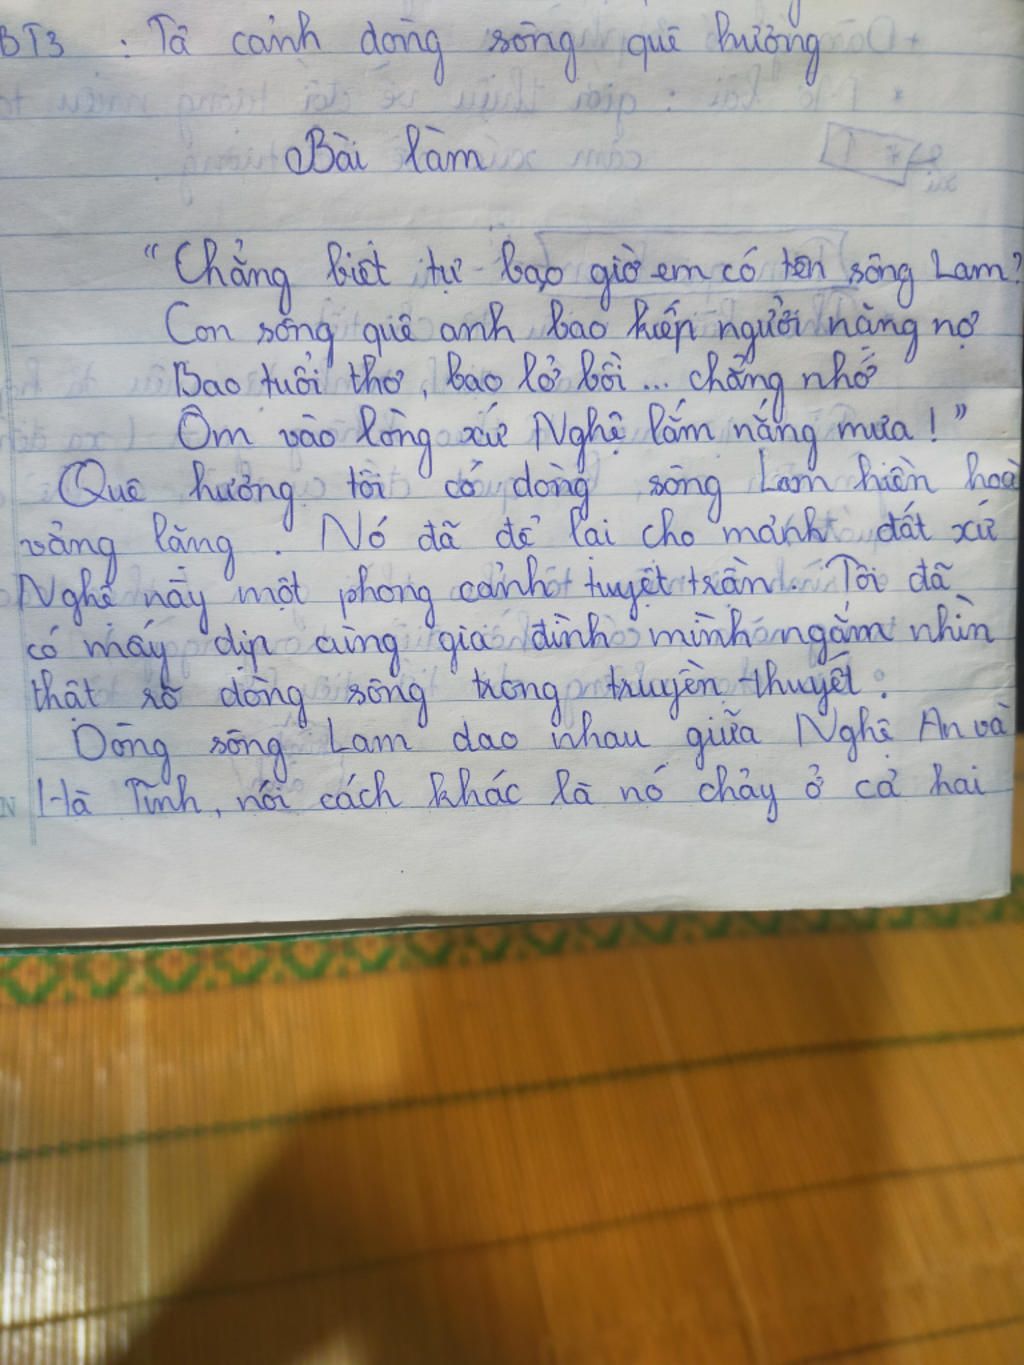 BT3 : Tả cảnh dòng sông quê hương
Bài làm
“Chẳng biết tự bao giờ em có tên sông Lam?
Con sông quê anh bao kiếp người nặng nợ
Bao tuổi thơ, bao lở bồi... chẳng nhớ
Ôm vào lòng xứ Nghệ lắm nắng mưa!”
Quê hương tôi có dòng sông Lam hiền hoà
vẳng lặng. Nó đã để lại cho mảnh đất xứ
Nghệ này một phong cảnh tuyệt trần. Tôi đã
có mấy dịp cùng gia đình mình ngắm nhìn
thật rõ dòng sông trong truyền thuyết.
Dòng sông Lam dao nhau giữa Nghệ An và
Hà Tĩnh, nói cách khác là nó chảy ở cả hai